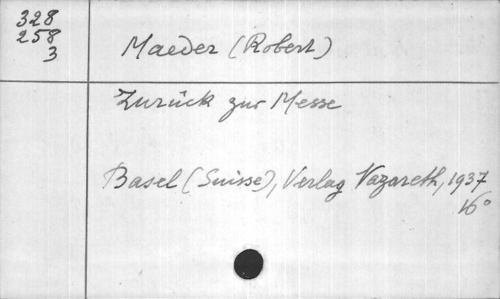 328
258
3
Maeder (Robert)
Zurück zur Messe
Basel (Suisse), Verlag Nazareth, 1937
16°